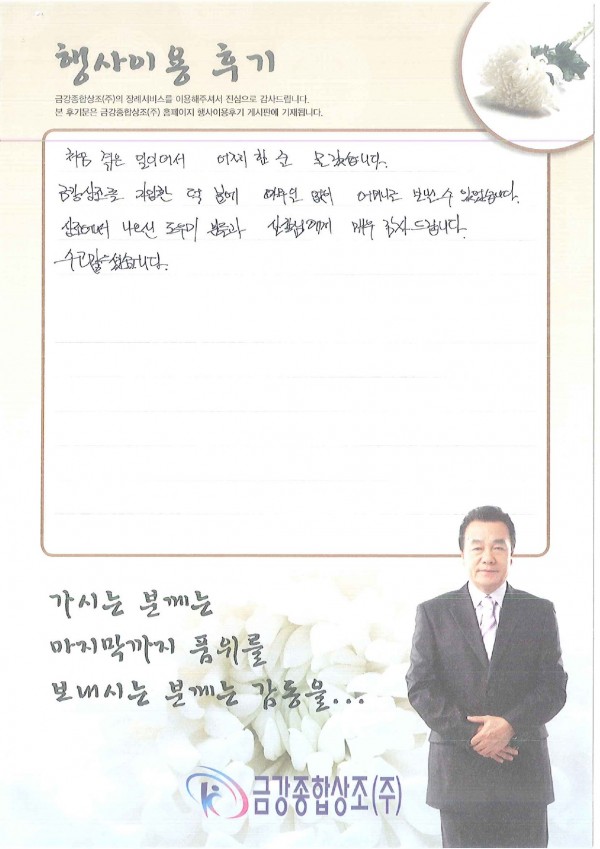 행사이용 후기
금강종합상조(주)의 장례서비스를 이용해주셔서 진심으로 감사드립니다.
본 후기문은 금강종합상조(주) 홈페이지 행사이용후기 게시판에 기재됩니다.
처음 겪은 일이어서 어찌 할 줄 몰랐습니다.
금강상조를 가입한 덕분에 어머니 보낼 수 있었습니다.
상조에서 나오신 도우미 분들과 실장님에게 매우 감사드립니다.
수고많으셨습니다.
가시는 분께는
마지막까지 품위를
보내시는 분께는 감동을...
금강종합상조(주)